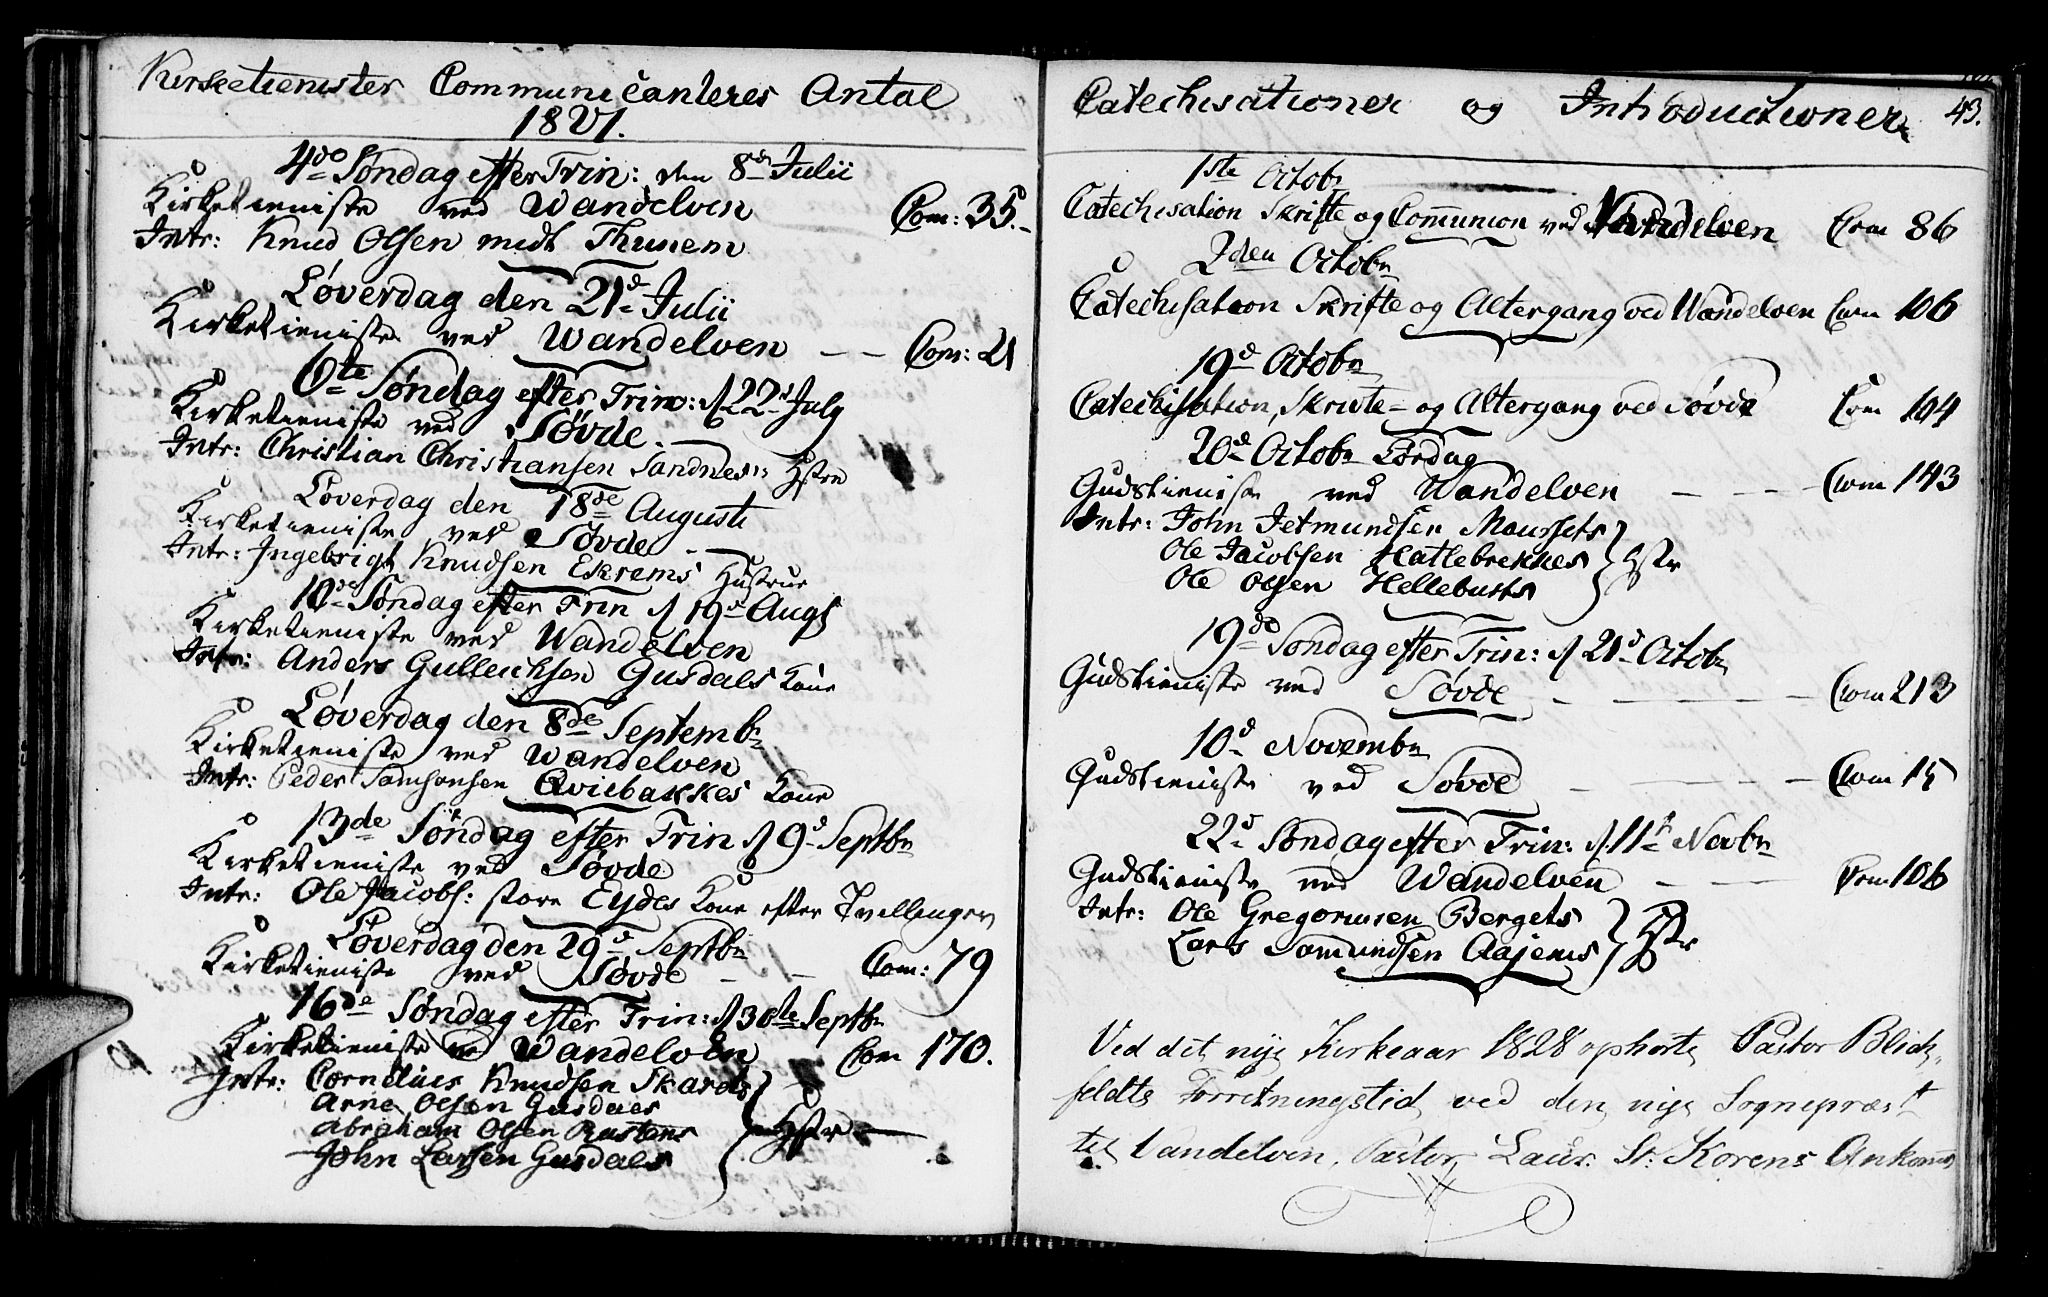 Kirketienister Communicanteres Antal
1827.
4de Søndag efter Trin: den 8de Julii
Kirketieniste ved Wandelven Com: 35.-
Intr: Knud Olsen midt Thunem
Løverdag den 21de Julii
Kirketieniste ved Wandelven - - Com: 21
6te Søndag efter Trin: d 22d July
Kirketieniste ved Søvde. -
Intr: Christian Christiansen Sandnes Hstr
Løverdag den 18de Augusti
Kirketieniste ved Søvde -
Intr: Ingebrigt Knudsen Ekrems Hustrue
10de Søndag efter Trin d 19de Augs
Kirketieniste ved Wandelven
Intr: Anders Gullichsen Gusdals Kone
Løverdag den 8de Septembr
Kirketieniste ved Wandelven
Intr: Peder Samsonsen Qviebakkes Kone
13de Søndag efter Trin d 9d Septbr
Kirketieniste ved Søvde
Intr: Ole Jacobs: store Eydes Kone efter Tvillinger
Løverdag den 29d Septbr
Kirketieniste ved Søvde - - Com: 79
16de Søndag efter Trin: d 30te Septbr
Kirketieniste ved Wandelven Com 170.
Intr: Cornelius Knudsen Skards
Arne Olsen Gusdals
Abraham Olsen Rustens Hstr
John Larsen Gusdals
Catechisationer og Introductioner 43.
1ste Octobr
Catechisation Skrifte og Communion ved Wandelven Com 86
2den Octobr
Catechisation Skrifte og Altergang ved Wandelven Com 106
19d Octobr
Catechisation, Skrivte- og Altergang ved Søvde Com 104
20d Octobr Lørdag
Gudstieniste ved Wandelven - - - - Com 143
Intr: John Jetmundsen Maursets
Ole Jacobsen Hatlebrekkes Hstr
Ole Olsen Hellebusts
19de Søndag efter Trin: d 21d Octobr
Gudstieniste ved Søvde - - - Com 213
10d Novembr
Gudstieniste ved Søvde - - - - Com 15
22d Søndag efter Trin: d. 11te Novbr
Gudstieniste ved Wandelven - - Com 106
Intr: Ole Gregoriusen Bergets
Lars Samundsen Aajems Hstr
Ved det nye Kirkeaar 1828 ophørte Pastor Blich-
feldts Forretningstid ved den nye Sognepræst
til Vandelven, Pastor Laur: St: Korens Ankomst